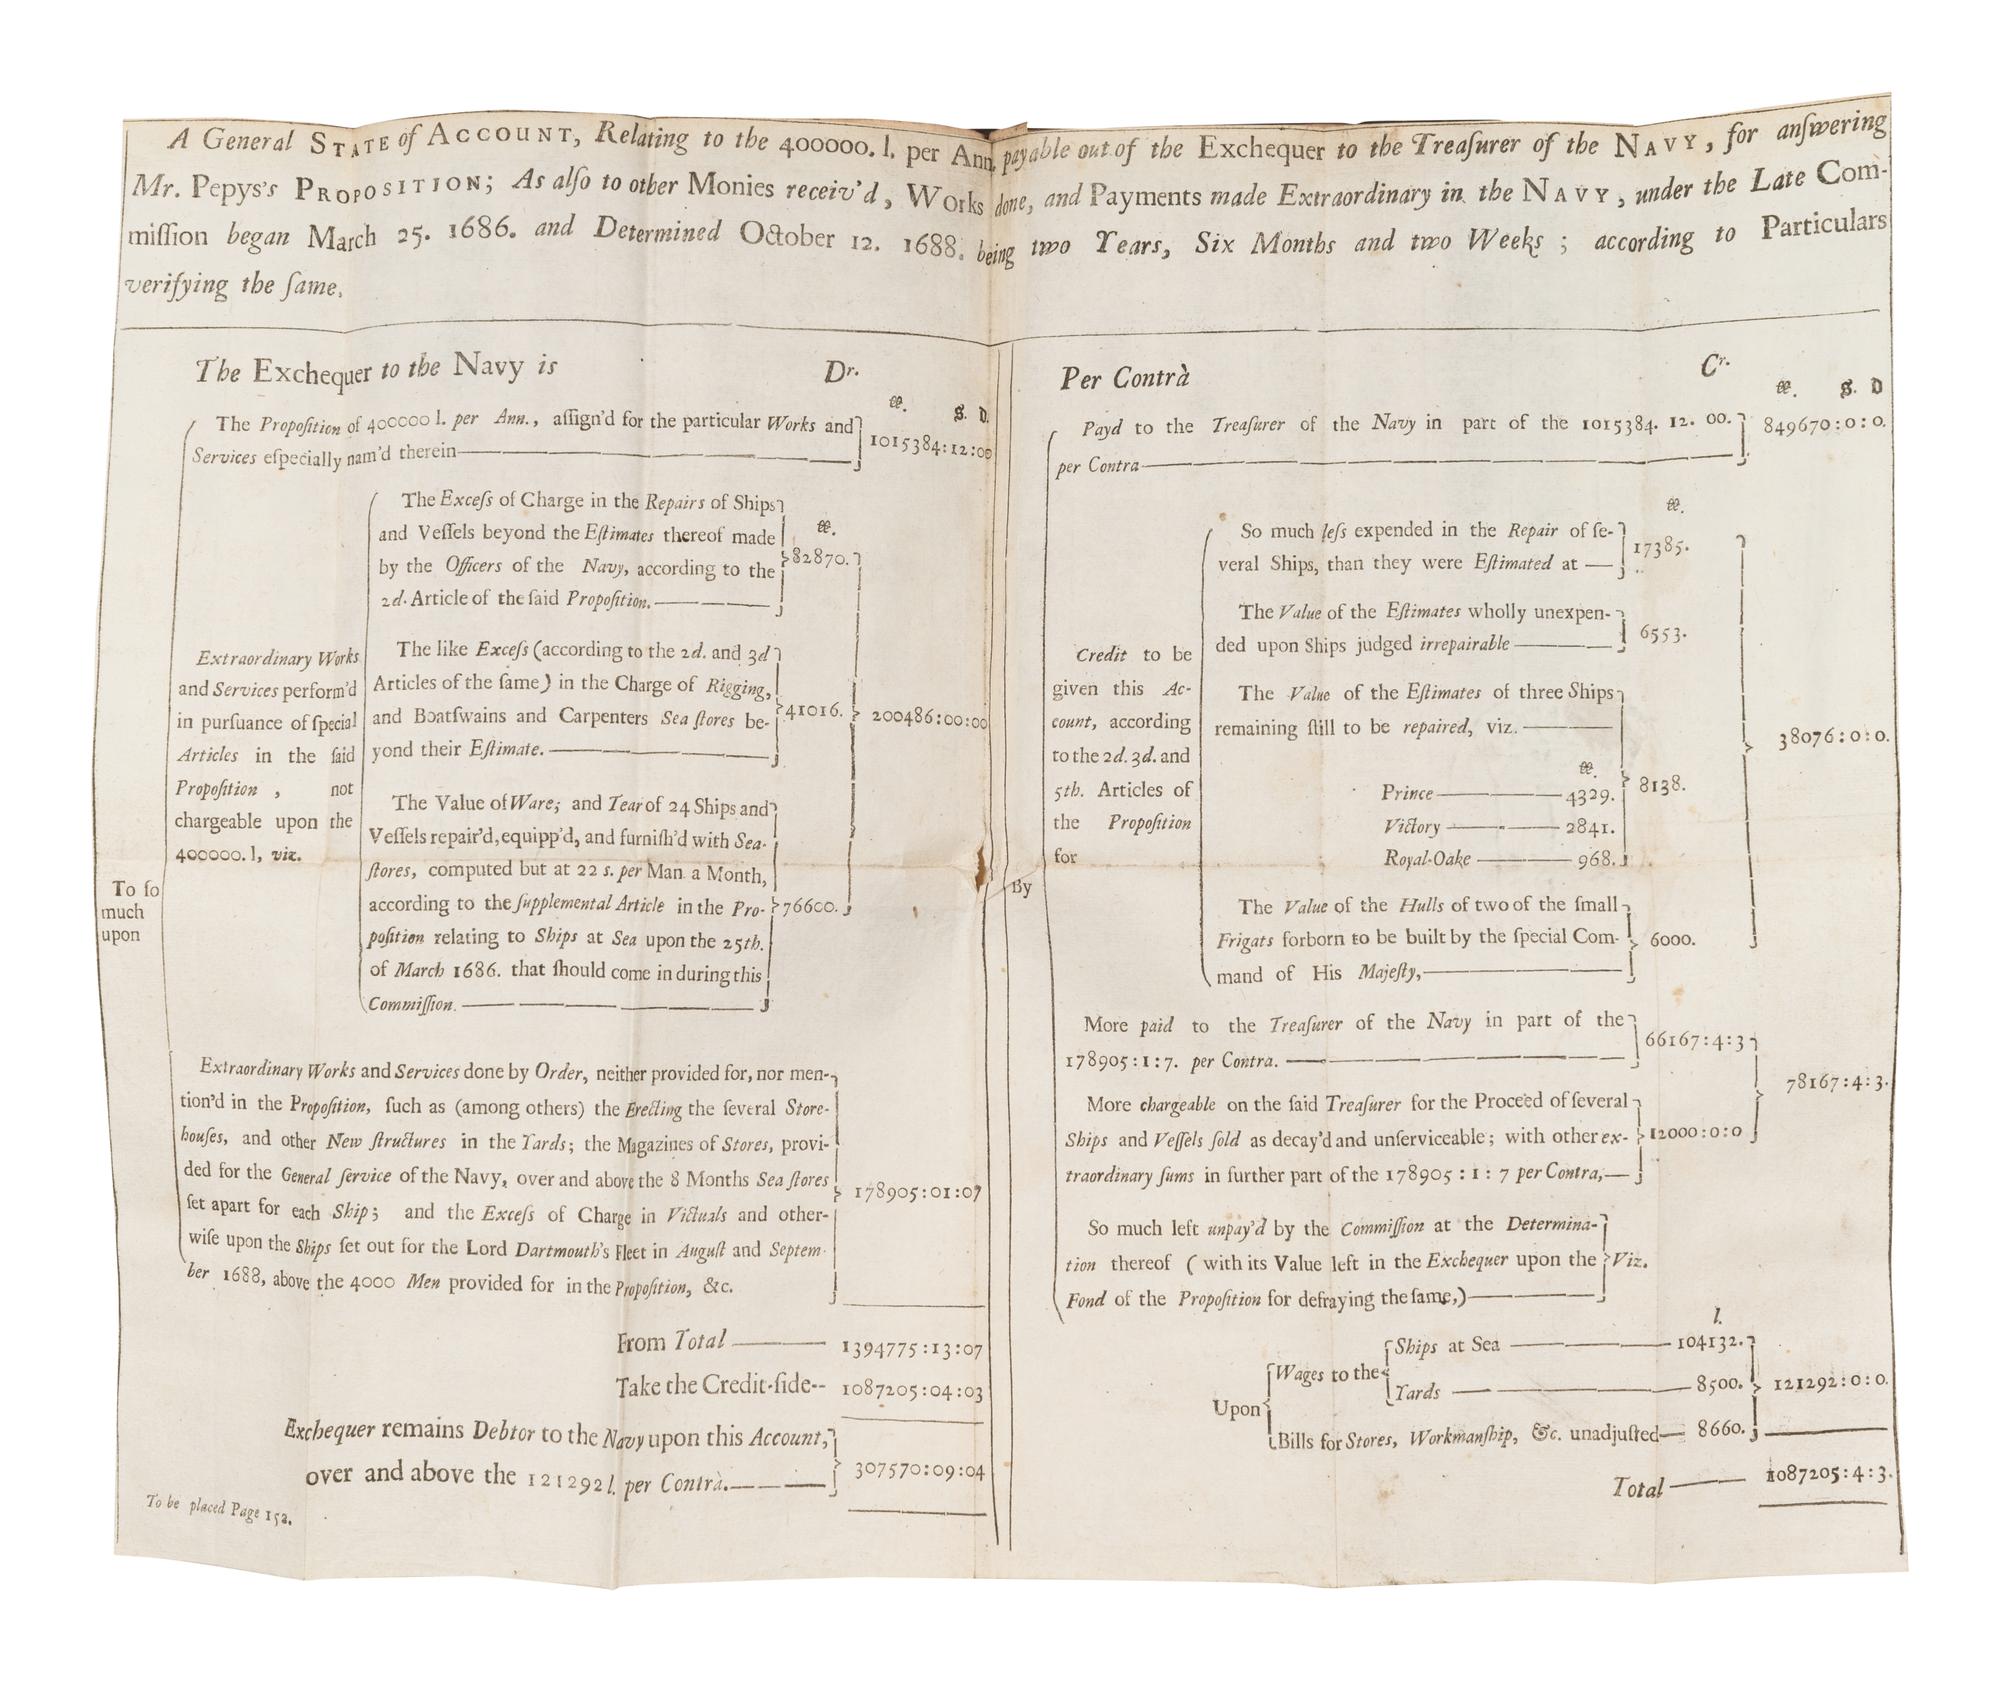 A General STATE of ACCOUNT, Relating to the 400000. l. per Ann. payable out of the Exchequer to the Treaſurer of the NAVY, for anſwering
Mr. Pepys's PROPOSITION; As alſo to other Monies receiv'd, Works done, and Payments made Extraordinary in the NAVY, under the Late Com-
miſſion began March 25. 1686. and Determined October 12. 1688. being two Years, Six Months and two Weeks; according to Particulars
verifying the ſame.
The Exchequer to the Navy is Dr.
ll. S. D.
The Propoſition of 400000 l. per Ann., aſſign'd for the particular Works and
Services eſpecially nam'd therein 1015384:12:00
To ſo
much
upon
Extraordinary Works
and Services perform'd
in purſuance of ſpecial
Articles in the ſaid
Propoſition, not
chargeable upon the
400000. l, viz.
The Exceſs of Charge in the Repairs of Ships
and Veſſels beyond the Eſtimates thereof made
by the Officers of the Navy, according to the
2d. Article of the ſaid Propoſition.
ll.
82870.
The like Exceſs (according to the 2d. and 3d
Articles of the ſame) in the Charge of Rigging,
and Boatſwains and Carpenters Sea ſtores be-
yond their Eſtimate.
41016.
200486:00:00
The Value of Ware; and Tear of 24 Ships and
Veſſels repair'd, equipp'd, and furniſh'd with Sea-
ſtores, computed but at 22 s. per Man a Month,
according to the ſupplemental Article in the Pro-
poſition relating to Ships at Sea upon the 25th.
of March 1686. that ſhould come in during this
Commiſſion.
76600.
Extraordinary Works and Services done by Order, neither provided for, nor men-
tion'd in the Propoſition, ſuch as (among others) the Erecting the ſeveral Store-
houſes, and other New ſtructures in the Yards; the Magazines of Stores, provi-
ded for the General ſervice of the Navy, over and above the 8 Months Sea ſtores
ſet apart for each Ship; and the Exceſs of Charge in Victuals and other-
wiſe upon the Ships ſet out for the Lord Dartmouth's Fleet in Auguſt and Septem-
ber 1688, above the 4000 Men provided for in the Propoſition, &c.
178905:01:07
From Total 1394775:13:07
Take the Credit-ſide-- 1087205:04:03
Exchequer remains Debtor to the Navy upon this Account,
over and above the 121292 l. per Contrà. 307570:09:04
To be placed Page 152.
Per Contrà Cr.
ll. S. D
Payd to the Treaſurer of the Navy in part of the 1015384. 12. 00. 849670:0:0.
per Contra
By
Credit to be
given this Ac-
count, according
to the 2d. 3d. and
5th. Articles of
the Propoſition
for
ll.
So much leſs expended in the Repair of ſe-
veral Ships, than they were Eſtimated at
17385.
The Value of the Eſtimates wholly unexpen-
ded upon Ships judged irrepairable
6553.
The Value of the Eſtimates of three Ships
remaining ſtill to be repaired, viz.
ll.
Prince 4329.
Victory 2841.
Royal-Oake 968.
8138.
38076:0:0.
The Value of the Hulls of two of the ſmall
Frigats forborn to be built by the ſpecial Com-
mand of His Majeſty,
6000.
More paid to the Treaſurer of the Navy in part of the
178905:1:7. per Contra.
66167:4:3
More chargeable on the ſaid Treaſurer for the Proceed of ſeveral
Ships and Veſſels ſold as decay'd and unſerviceable; with other ex-
traordinary ſums in further part of the 178905:1:7 per Contra,
12000:0:0
78167:4:3.
So much left unpay'd by the Commiſſion at the Determina-
tion thereof (with its Value left in the Exchequer upon the
Fond of the Propoſition for defraying the ſame,)
Viz.
l.
Upon
Wages to the
Ships at Sea 104132.
Yards 8500.
Bills for Stores, Workmanſhip, &c. unadjuſted 8660.
121292:0:0.
Total 1087205:4:3.